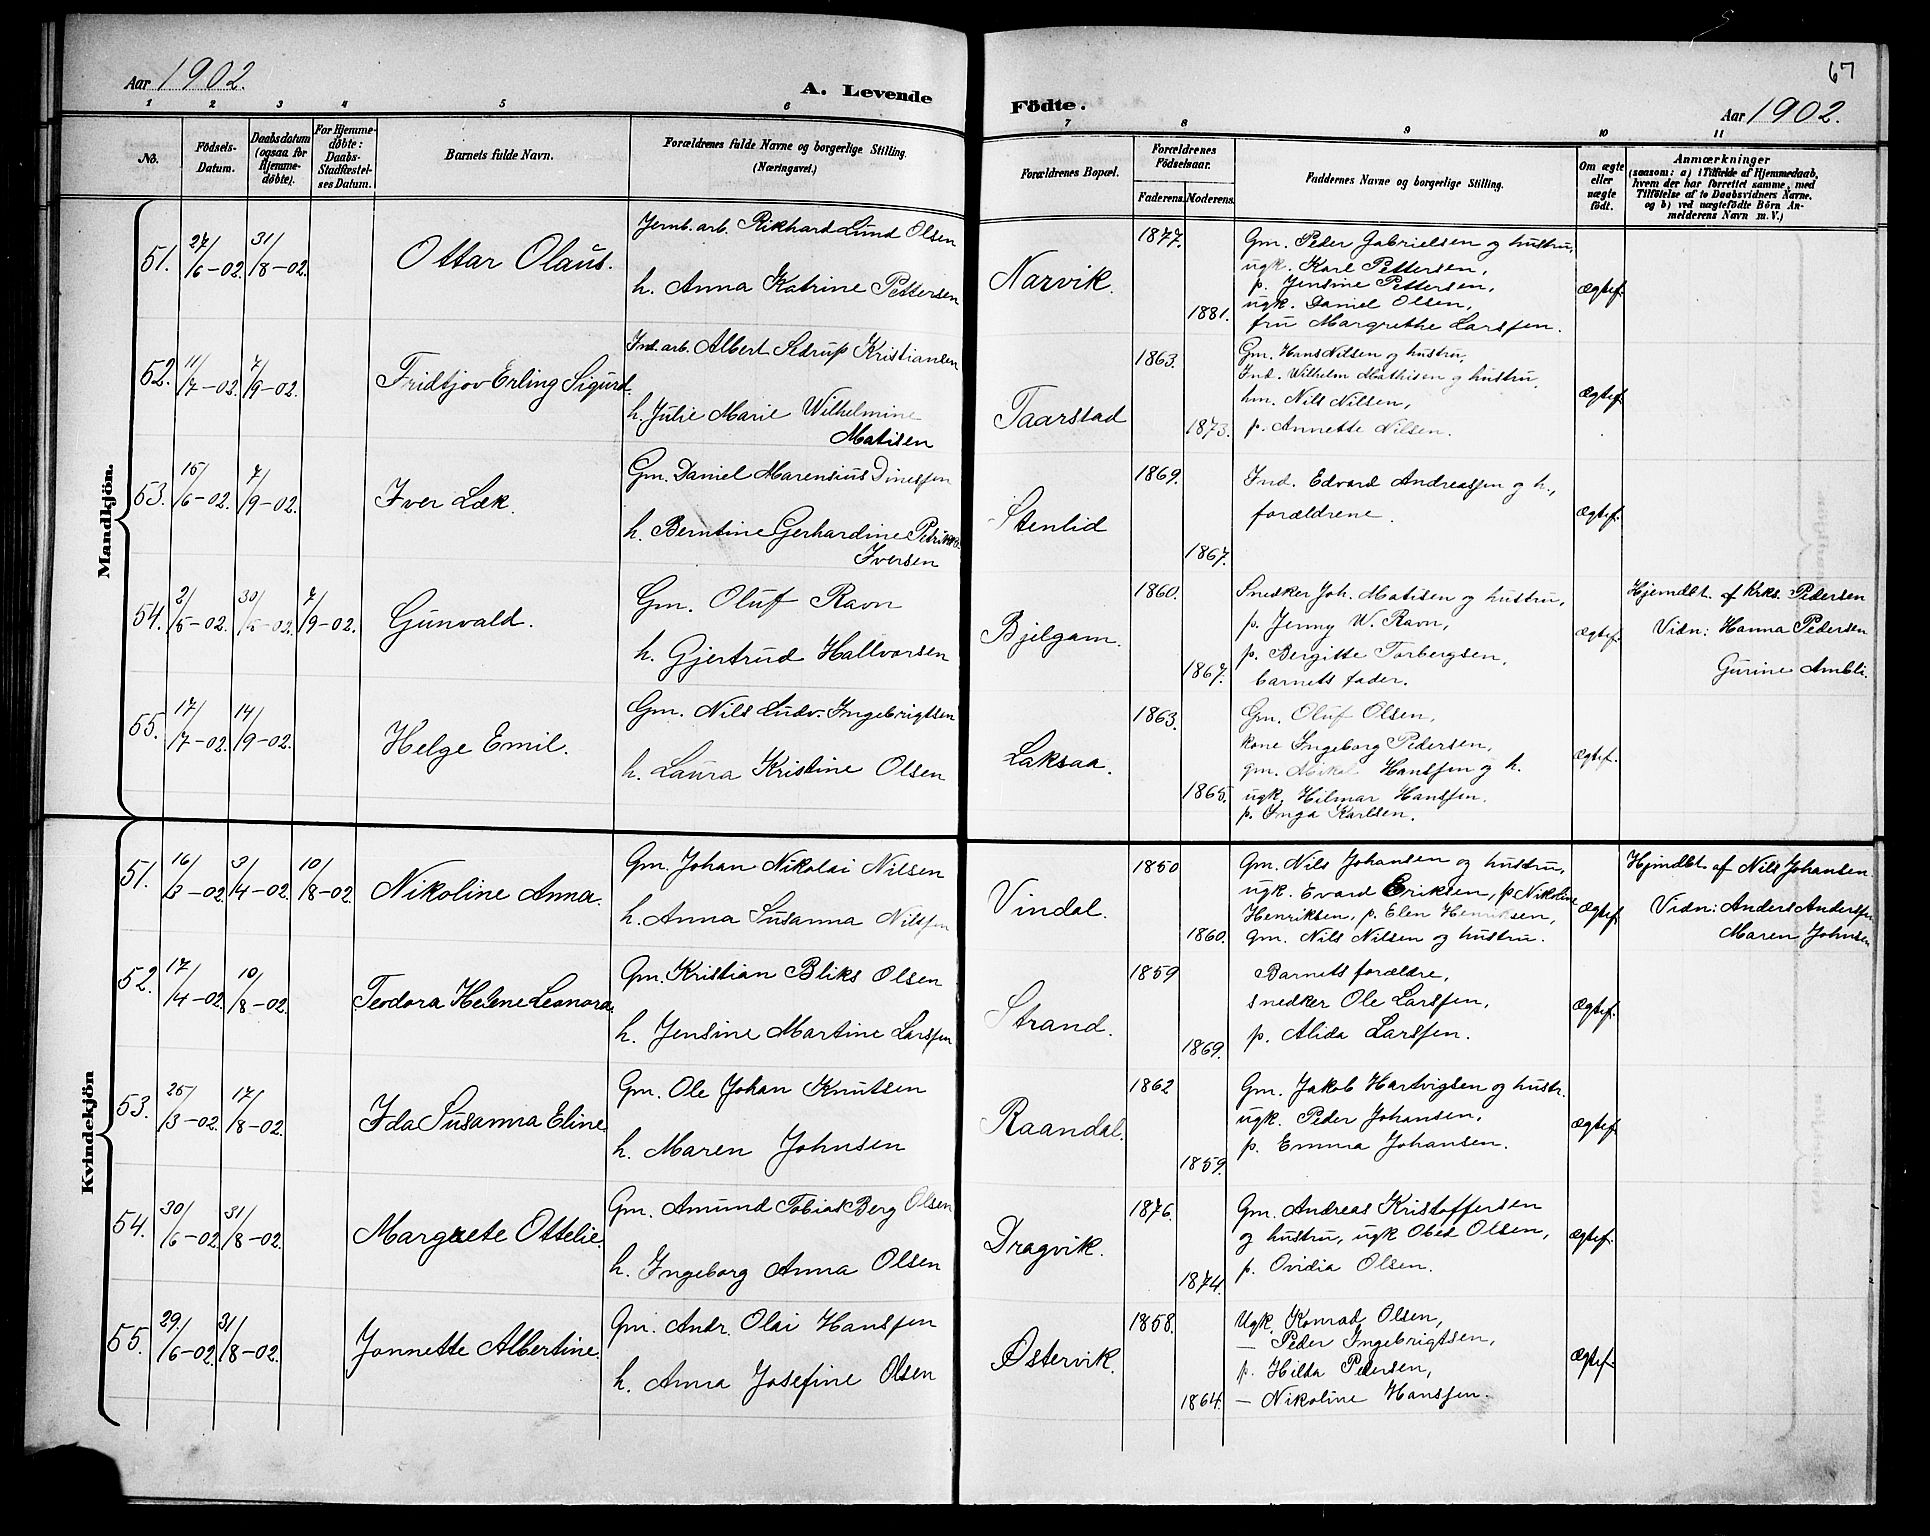 67
Aar 1902.
A. Levende
Födte.
Aar 1902.
1 2 3 4 5 6 7 8 9 10 11
No.
Födsels-Datum.
Daabsdatum (ogsaa for Hjemmedøbte).
For Hjemmedøbte: Daabs-Stadfæstelses Datum.
Barnets fulde Navn.
Forældrenes fulde Navne og borgerlige Stilling. (Næringsvei.)
Forældrenes Bopæl.
Forældrenes Födselsaar.
Faderens. Moderens.
Faddernes Navne og borgerlige Stilling.
Om ægte eller uægte födt.
Anmærkninger
(saasom: a) i Tilfælde af Hjemmedaab,
hvem der har forrettet samme, med
Tilföielse af to Daabsvidners Navne.
og b) ved uægtefödte Börn An-
melderens Navn m. V.)
Mandkjön.
51. 27/6-02. 31/8-02. Ottar Olaus.
Jernb. arb. Rikhard Lund Olsen
h. Anna Katrine Pettersen
Narvik.
1877.
1881.
Gm. Peder Gabrielsen og hustru,
ugk. Karl Pettersen,
p. Jensine Pettersen,
ugk. Daniel Olsen,
fru Margrethe Larssen.
Ægtef.
52. 11/7-02. 7/9-02. Fridtjov Erling Sigurd.
Ind. arb. Albert Sedrup Kristiansen
h. Julie Marie Wilhelmine
Matisen
Taarstad
1863.
1873.
Gm. Hans Nilsen og hustru,
Ind. Wilhelm Mathisen og hustru,
hm. Nils Nilsen,
p. Annette Nilsen.
Ægtef.
53. 15/6-02. 7/9-02. Iver Læk.
Gm. Daniel Marensius Dinessen
h. Berntine Gerhardine
Iversen
Stenlid
1869.
1867.
Ind. Edvard Andreassen og h.,
forældrene.
Ægtef.
54. 2/5-02. 30/5-02. 7/9-02. Gunvald.
Gm. Oluf Ravn
h. Gjertrud Hallvorsen
Bjelgam.
1860.
1867.
Snedker Joh. Matisen og hustru,
p. Jenny W. Ravn,
p. Bergitte Torbergsen,
barnets fader.
Ægtef.
Hjemdbt. af Krks. Pedersen
Vidn: Hanna Pedersen
Gurine Ambli.
55. 17/7-02. 14/9-02. Helge Emil.
Gm. Nils Ludv. Ingebrigtsen
h. Laura Kristine Olsen
Laksaa.
1863.
1865.
Gm. Oluf Olsen,
kone Ingeborg Pedersen,
gm. Mikal Hanssen og h.
ugk. Hilmar Hanssen.
p. Inga Karlsen.
Ægtef.
Kvindekjön
51. 16/3-02. 3/4-02. 10/8-02. Nikoline Anna.
Gm. Johan Nikolai Nilsen
h. Anna Susanna Nilssen
Vindal.
1850
1860.
Gm. Nils Johansen og hustru,
ugk. Evard Eriksen, p. Nikoline
Henriksen, p. Elen Henriksen,
gm. Nils Nilsen og hustru.
Ægtef.
Hjmdbt af Nils Johansen.
Vidn: Anders Anderssen
Maren Johnsen
52. 17/4-02. 10/8-02. Teodora Helene Leonora.
Gm. Kristian Bliks Olsen
h. Jensine Martine Larssen
Strand.
1859
1869.
Barnets forældre,
snedker Ole Larssen,
p. Alida Larssen.
Ægtef.
53. 25/3-02. 17/8-02. Ida Susanna Eline.
Gm. Ole Johan Knutsen
h. Maren Johnsen
Raandal.
1862
1859.
Gm. Jakob Hartvigsen og hustr.
ugk. Peder Johansen,
p. Emma Johansen.
Ægtef.
54. 30/6-02. 31/8-02. Margrete Ottelie.
Gm. Amund Tobias Berg Olsen
h. Ingeborg Anna Olsen
Dragvik.
1876.
1874.
Gm. Andreas Kristoffersen
og hustru, ugk Obed Olsen,
p. Ovidia Olsen.
Ægtef.
55. 29./6-02. 31/8-02. Jonnette Albertine.
Gm. Andr. Olai Hanssen
h. Anna Josefine Olsen
Østervik.
1858.
1864.
Ugk. Konrad Olsen,
— Peder Ingebrigtsen,
p. Hilda Pedersen,
— Nikoline Hanssen.
Ægtef.